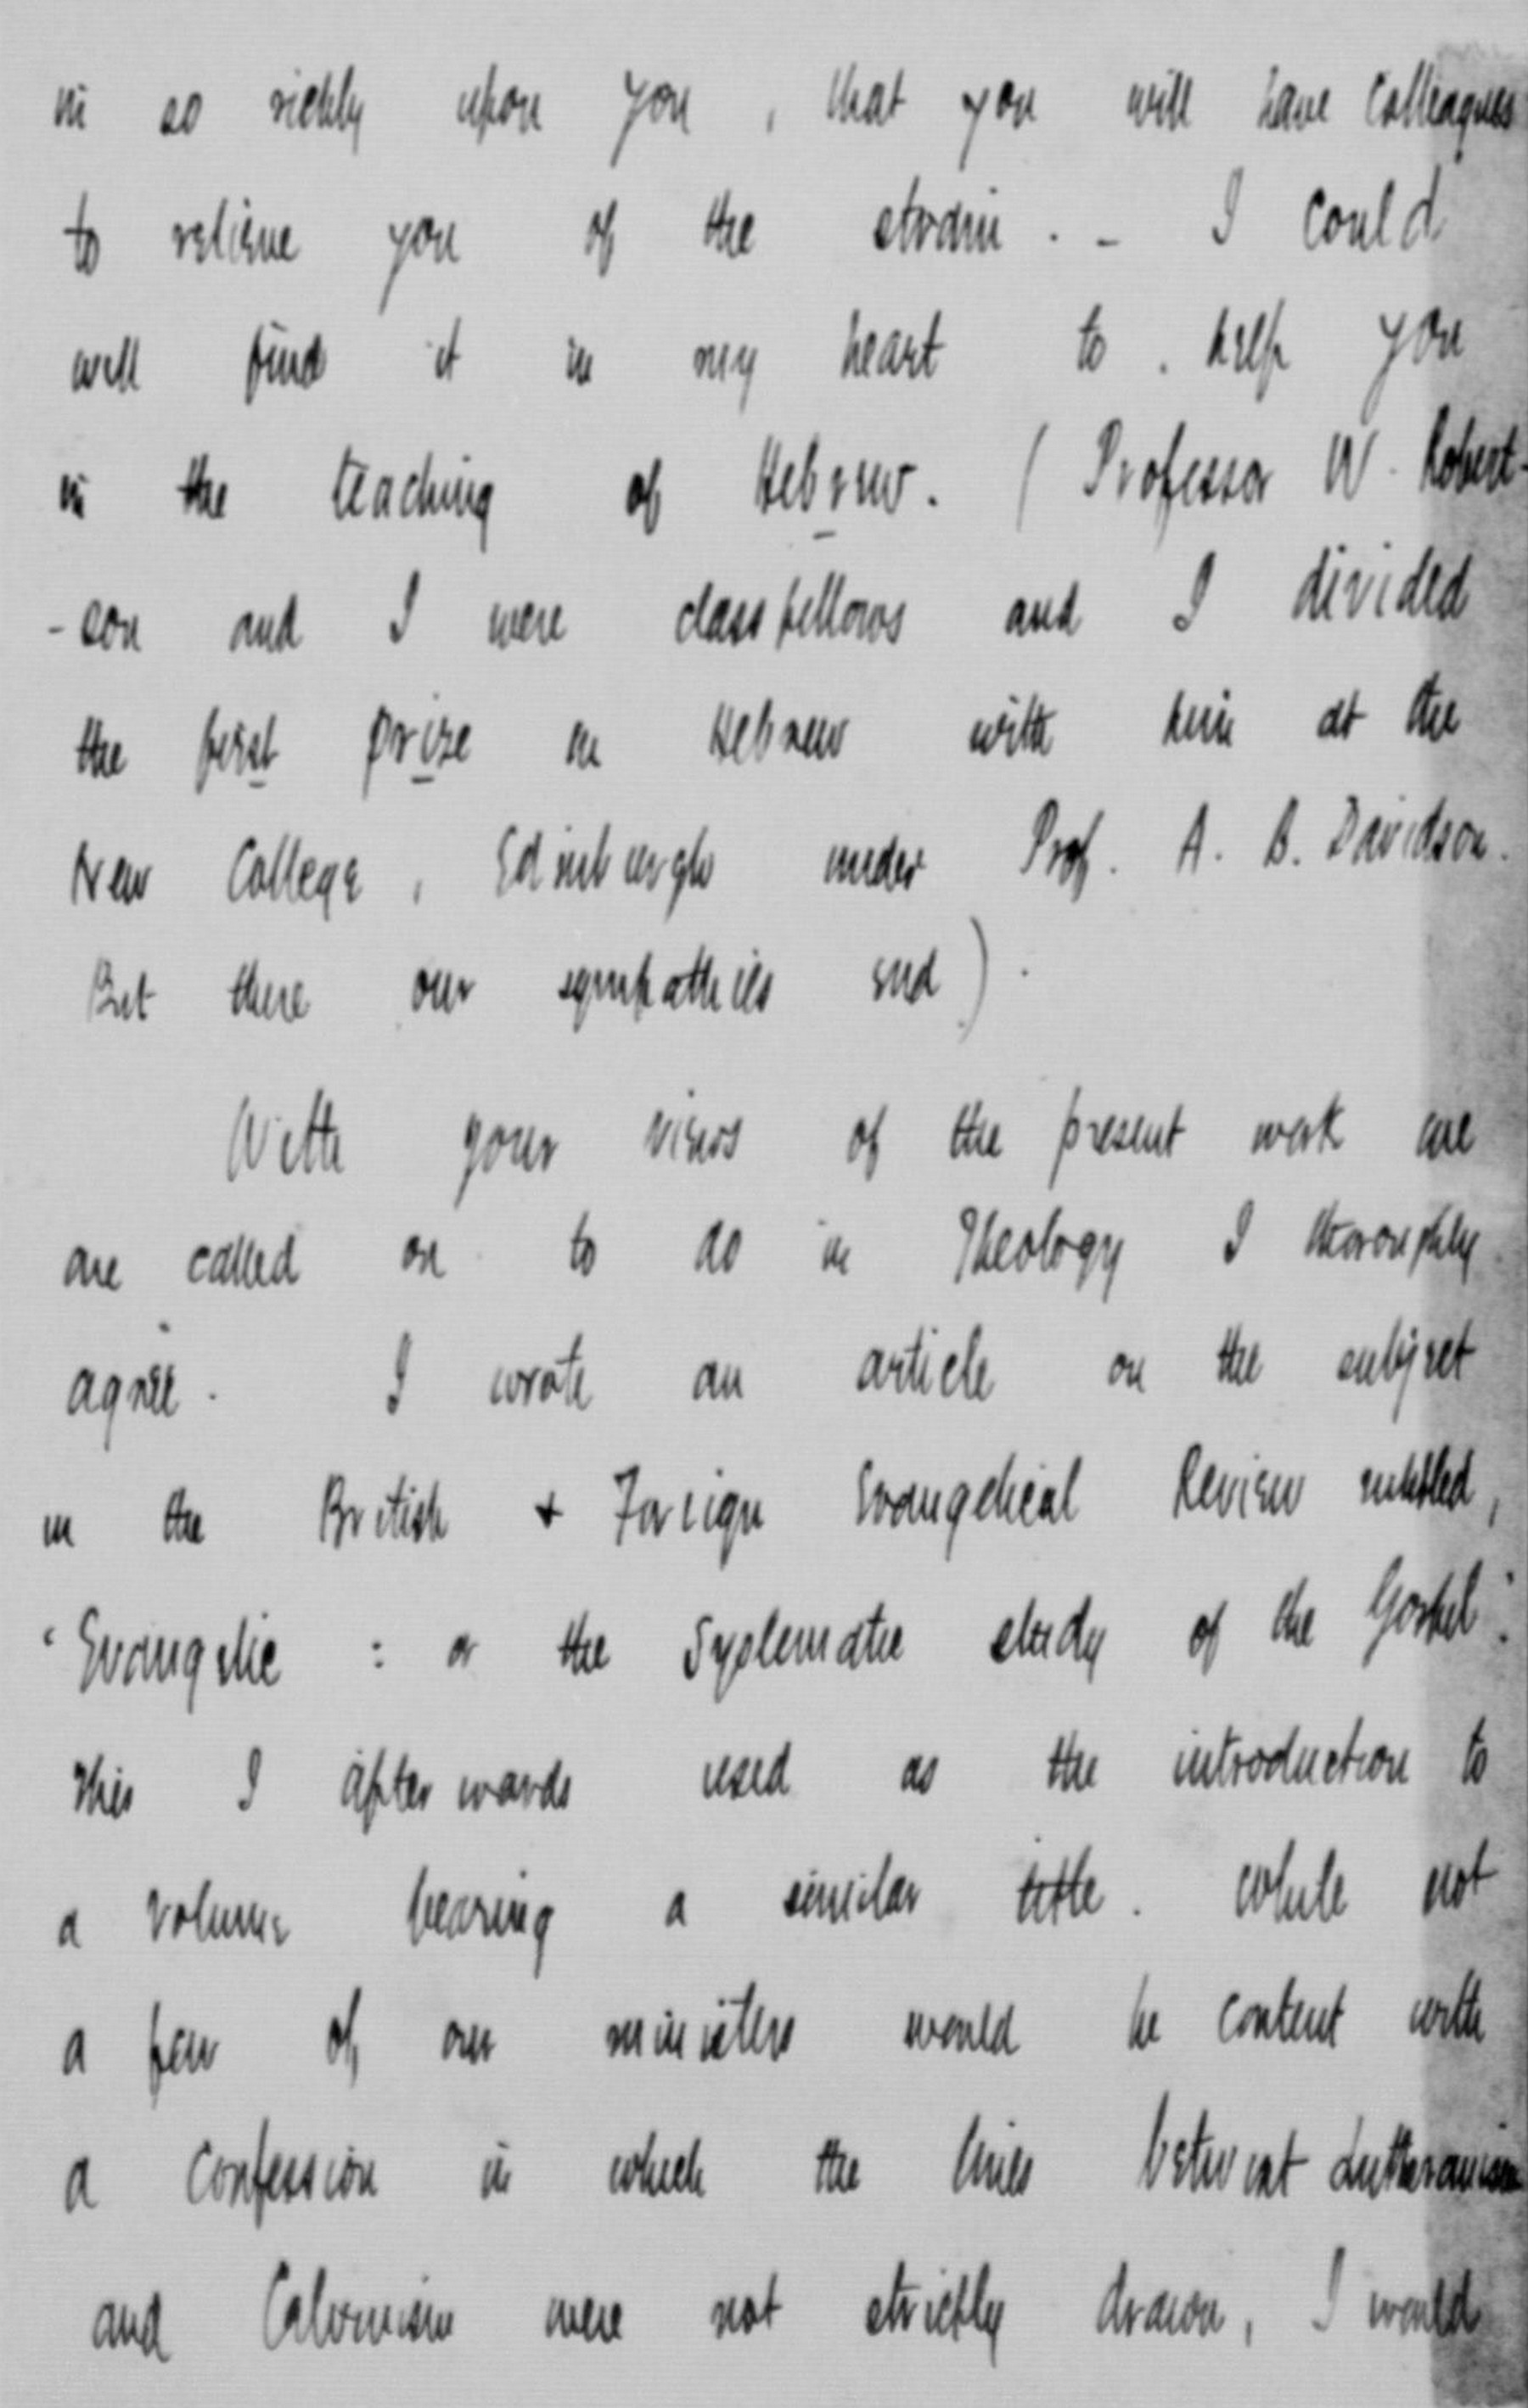 in so richly upon you, that you will have Colleagues
to relieve you of the strain. - I could
well find it in my heart to . help you
in the teaching of Hebrew. (Professor W. Robert-
-son and I were classfellows and I divided
the first prize in Hebrew with him at the
New College, Edinburgh under Prof. A. B. Davidson.
But there our sympathies end).
With your views of the present work we
are called on to do in Theology I thoroughly
agree. I wrote an article on the subject
in the British + Foreign Evangelical Review entitled,
"Evangelic : or the Systematic study of the Gospel".
This I afterwards used as the introduction to
a volume bearing a similar title. While not
a few of our ministers would be content with
a Confession in which the lines betwixt Lutheranism
and Calvinism were not strictly drawn, I would